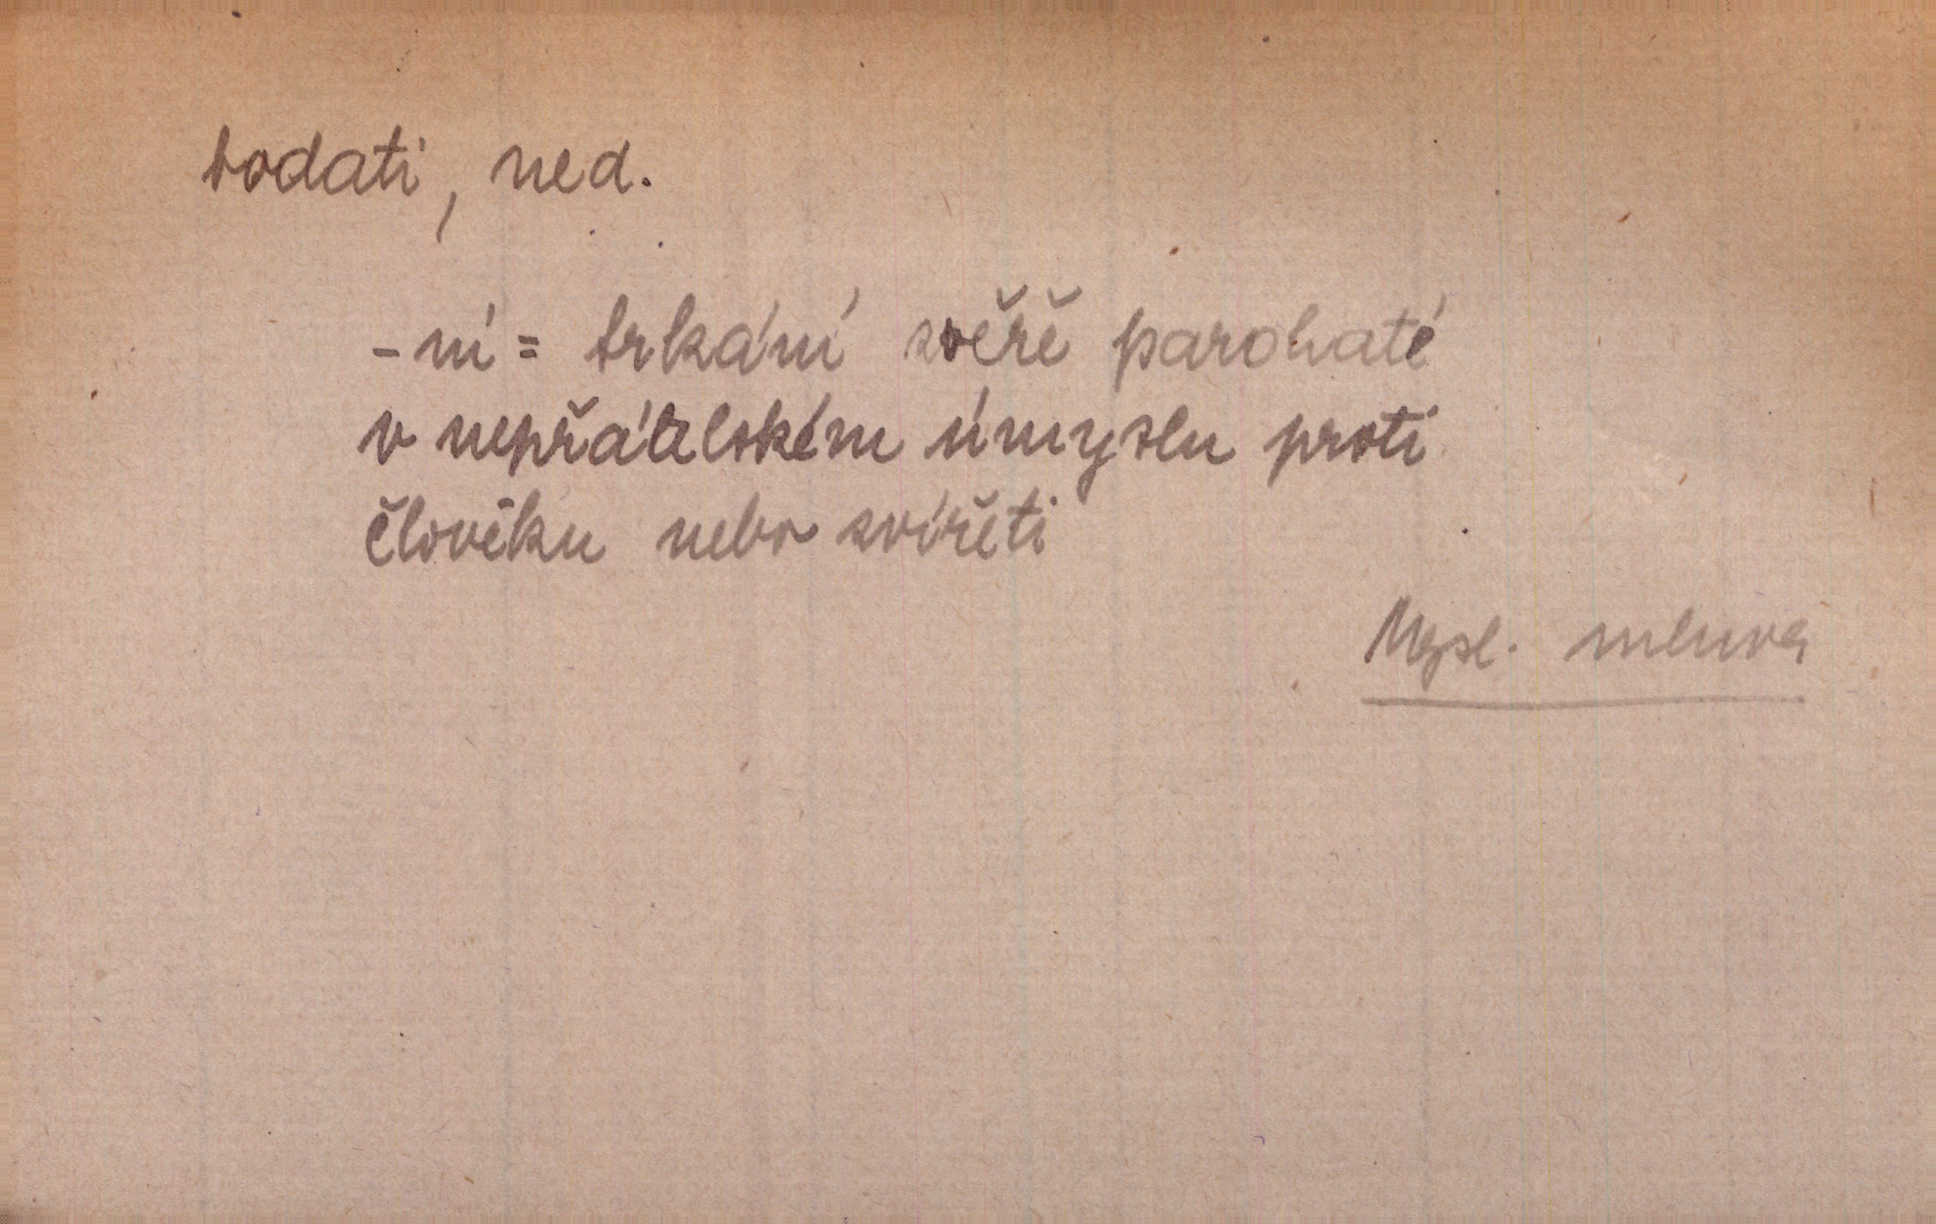 bodati, ned.
-ní = trkání zvěře parohaté
v nepřátelském úmyslu proti
člověku nebo zvířeti
Mysl. mluva